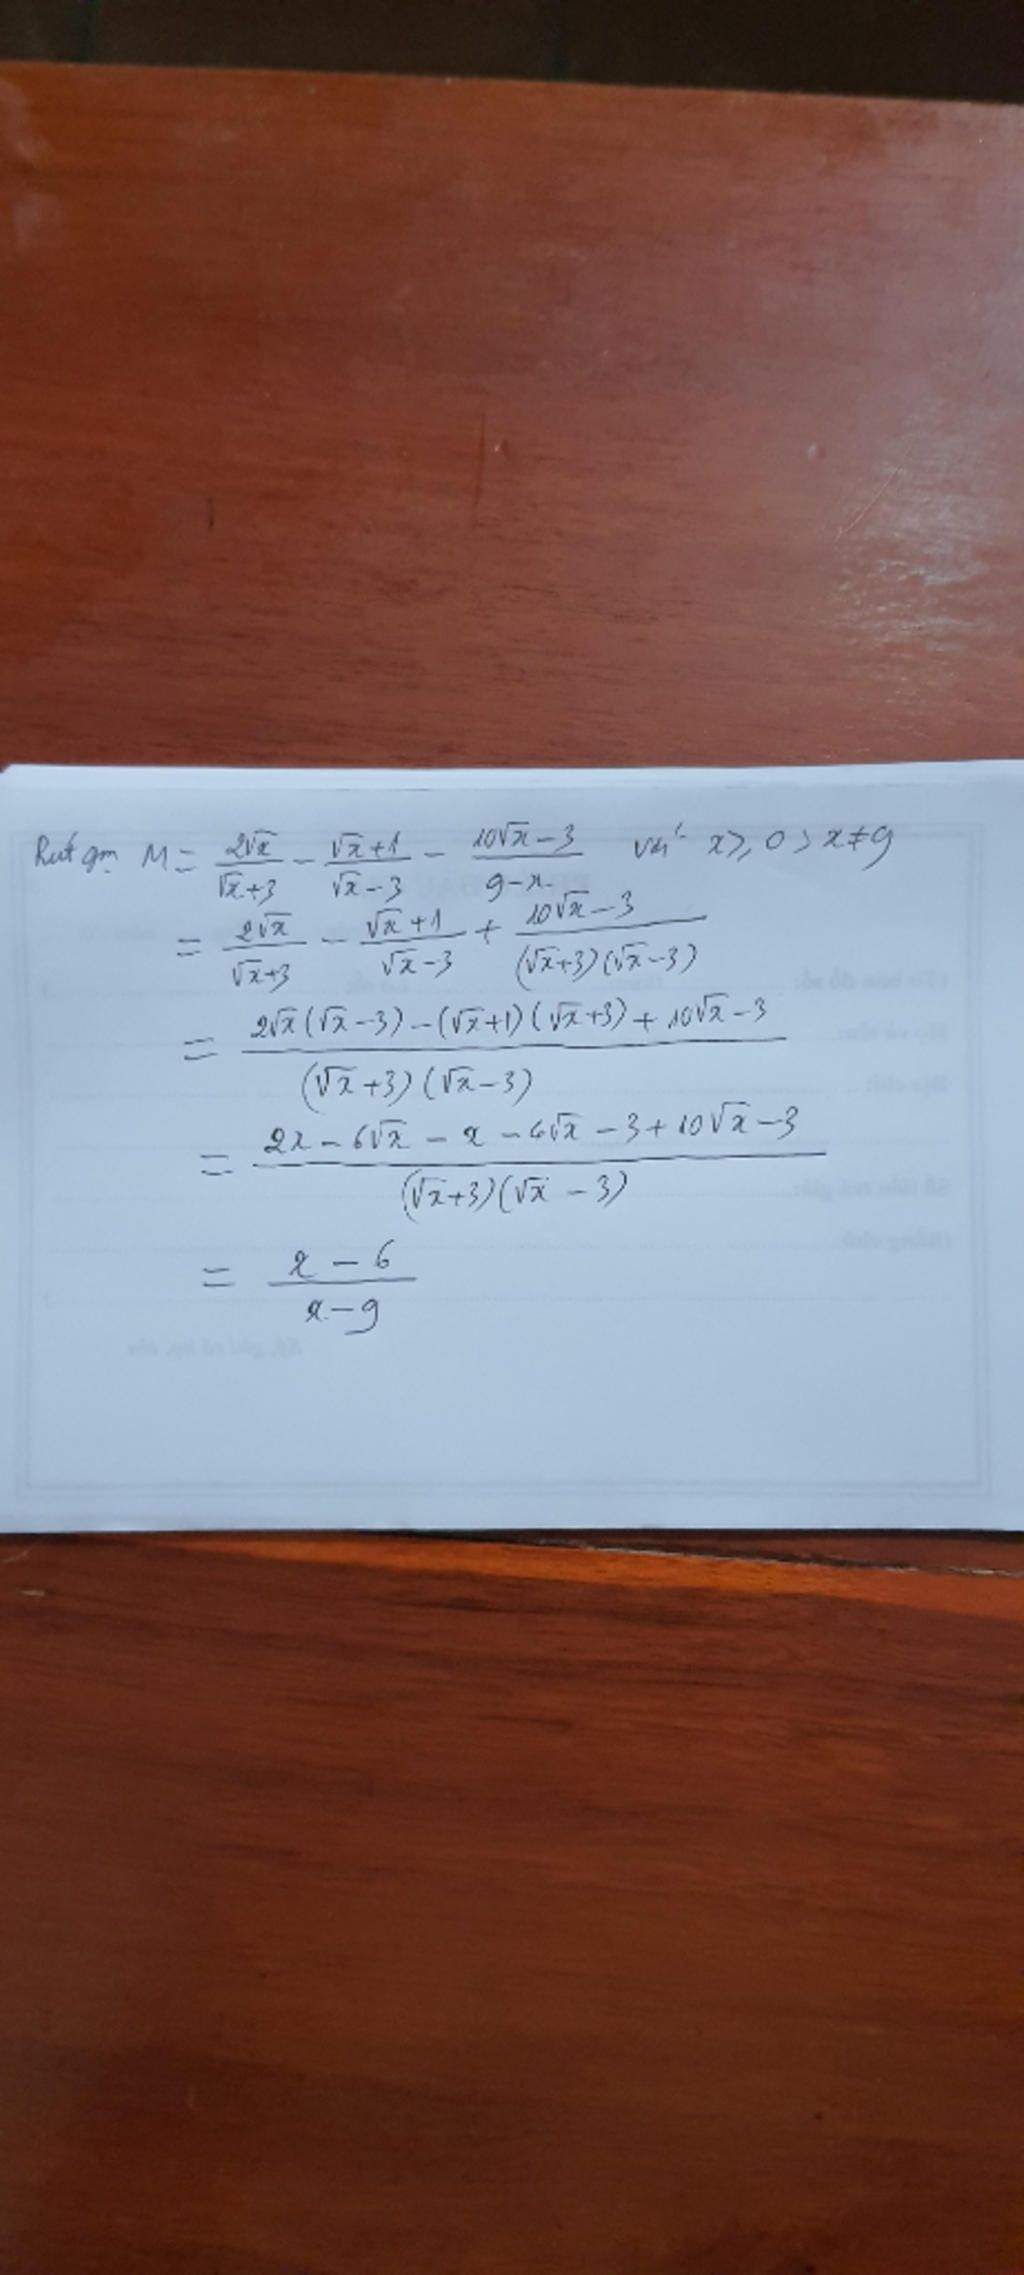 Rút gọn M = 2√x/(√x+3) - (√x+1)/(√x-3) - (10√x-3)/(9-x) với x ≥ 0; x ≠ 9
= 2√x/(√x+3) - (√x+1)/(√x-3) + (10√x-3)/((√x+3)(√x-3))
= (2√x(√x-3) - (√x+1)(√x+3) + 10√x-3)/((√x+3)(√x-3))
= (2x - 6√x - x - 4√x - 3 + 10√x - 3)/((√x+3)(√x-3))
= (x-6)/(x-9)